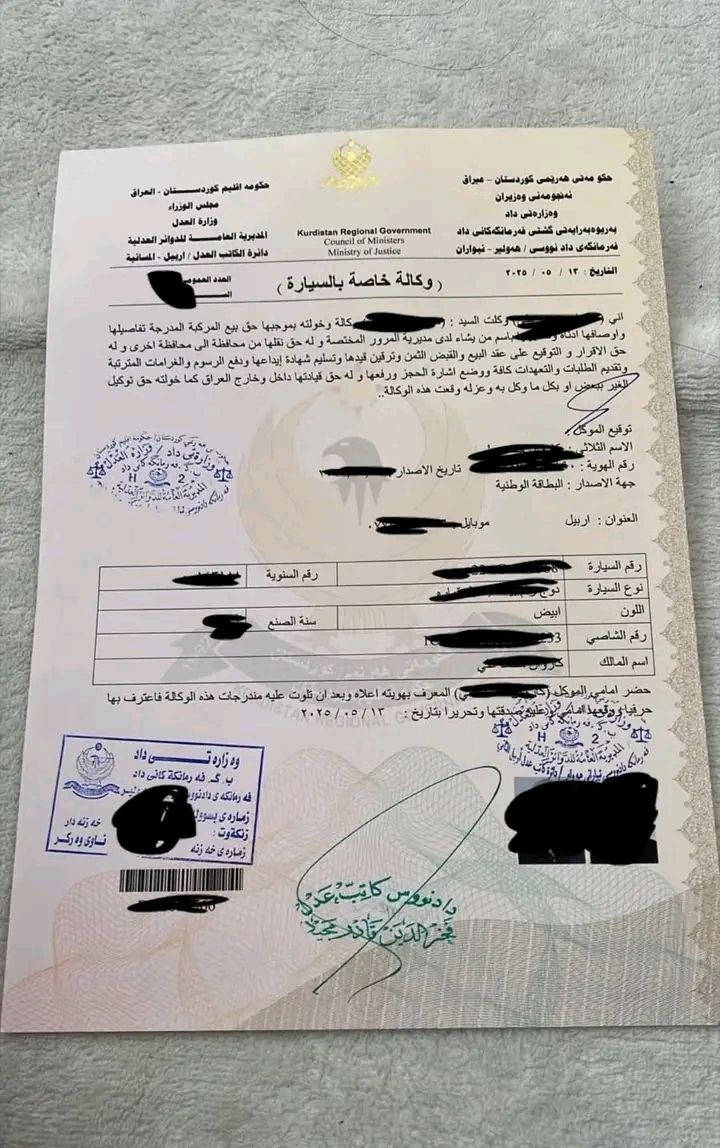 حكومه اقليم كوردستان - العراق
مجلس الوزراء
وزارة العدل
المديرية العامة للدوائر العدلية
دائرة الكاتب العدل / اربيل - المسائية
العدد العمومي
Kurdistan Regional Government
Council of Ministers
Ministry of Justice
حكومەتی هەرێمی كوردستان - عیراق
ئەنجومەنی وەزیران
وەزارەتی داد
بەریوەبەرایەتی گشتی فەرمانگەكانی داد
فەرمانگەی داد نووسی / هەولیر - ئیواران
التاريخ : ١٣ / ٠٥ / ٢٠٢٥
( وكالة خاصة بالسيارة )
اني ( وكلت السيد : ( وكالة وخولته بموجبها حق بيع المركبة المدرجة تفاصيلها
واوصافها ادناه باسم من يشاء لدى مديرية المرور المختصة و له حق نقلها من محافظة الى محافظة اخرى و له
حق الاقرار و التوقيع على عقد البيع والقبض الثمن وترقين قيدها وتسليم شهادة إيداعها ودفع الرسوم والغرامات المترتبة
وتقديم الطلبات والتعهدات كافة ووضع اشارة الحجز ورفعها و له حق قيادتها داخل وخارج العراق كما خولته حق توكيل
الغير ببعض او بكل ما وكل به وعزله وقعت هذه الوكالة..
توقيع الموكل
الاسم الثلاثي :
رقم الهوية : تاريخ الاصدار
جهة الاصدار : البطاقة الوطنية
العنوان : اربيل موبايل
رقم السيارة رقم السنوية
نوع السيارة
اللون ابيض سنة الصنع
رقم الشاصي
اسم المالك
حضر امامي الموكل ( ) المعرف بهويته اعلاه وبعد ان تلوت عليه مندرجات هذه الوكالة فاعترف بها
حرفيا ووقعها امامي وعليه صدقتها وتحريرا بتاريخ : ١٣ / ٠٥ / ٢٠٢٥
وزارەتی داد
H 2
المديرية العامة للدوائر العدلية
H 2
وە زارە تی داد
ب. گ. فە رمانگە كانی داد
زمارەی پسوو
زنكەوت :
زمارە ی خە زنە
خە زنە دار
ناوی وە رگر
دادنووس كاتب عدل
فخرالدين قادر مجيد